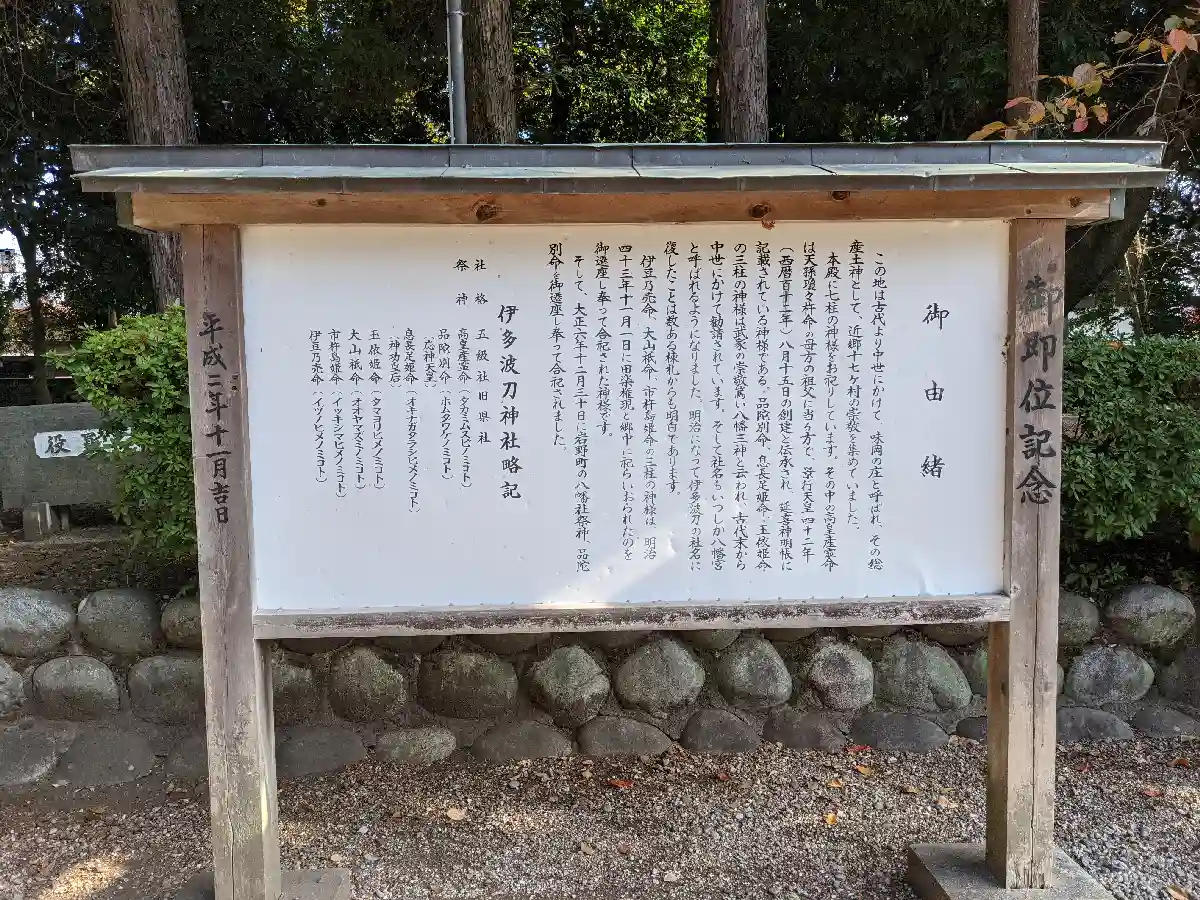 御即位記念
御由緒
この地は古代より中世にかけて、味岡の庄と呼ばれ、その総
産土神として、近郷十七ヶ村の崇敬を集めていました。
本殿に七柱の神様をお祀りしています。その中の高皇産霊命
は天孫瓊々杵命の母方の祖父に当る方で、景行天皇四十二年
(西暦百十二年)八月十五日の創建と伝承され、延喜神明帳に
記載されている神様である。品陀別命、息長足姫命、玉依姫命
の三柱の神様は武家の崇敬篤い八幡三神と云われ、古代末から
中世にかけて勧請されています。そして社名もいつしか八幡宮
と呼ばれるようになりました。明治になって伊多波刀の社名に
復したことは数ある棟札からも明白であります。
伊豆乃売命、大山祇命、市杵島姫命の三柱の神様は、明治
四十三年十一月一日に田染権現と郷中に祀らいおられたのを
御遷座し奉って合祀された神様です。
そして、大正六年十二月三十日に岩野町の八幡社祭神、品陀
別命を御遷座し奉って合祀されました。
伊多波刀神社略記
社格 五級社旧県社
祭神 高皇産霊命(タカミムスビノミコト)
品陀別命(ホムタワケノミコト)
(応神天皇)
息長足姫命(オキナガタラシヒメノミコト)
(神功皇后)
玉依姫命(タマヨリヒメノミコト)
大山祇命(オオヤマズミノミコト)
市杵島姫命(イッキシマヒメノミコト)
伊豆乃売命(イヅノヒメノミコト)
平成二年十一月吉日
役